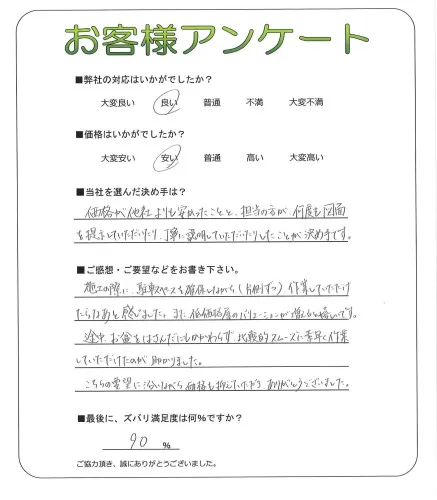 お客様アンケート
■弊社の対応はいかがでしたか?
大変良い 良い 普通 不満 大変不満
■価格はいかがでしたか?
大変安い 安い 普通 高い 大変高い
■当社を選んだ決め手は?
価格が他社よりも安かったことと、担当の方が、何度も図面
を提示していただいたり、丁寧に説明していただいたりしたことが決め手です。
■ご感想・ご要望などをお書き下さい。
施工の際に、駐車スペースを確保しながら(片側ずつ)作業していただけ
たらなあと感じました。また、低価格層のバリエーションが増えると嬉しいです。
途中、お盆をはさんだにもかかわらず、比較的スムーズに素早く作業
していただけたのが助かりました。
こちらの要望に沿いながら価格も抑えていただき ありがとうございました。
■最後に、ズバリ満足度は何%ですか?
90 %
ご協力頂き、誠にありがとうございました。